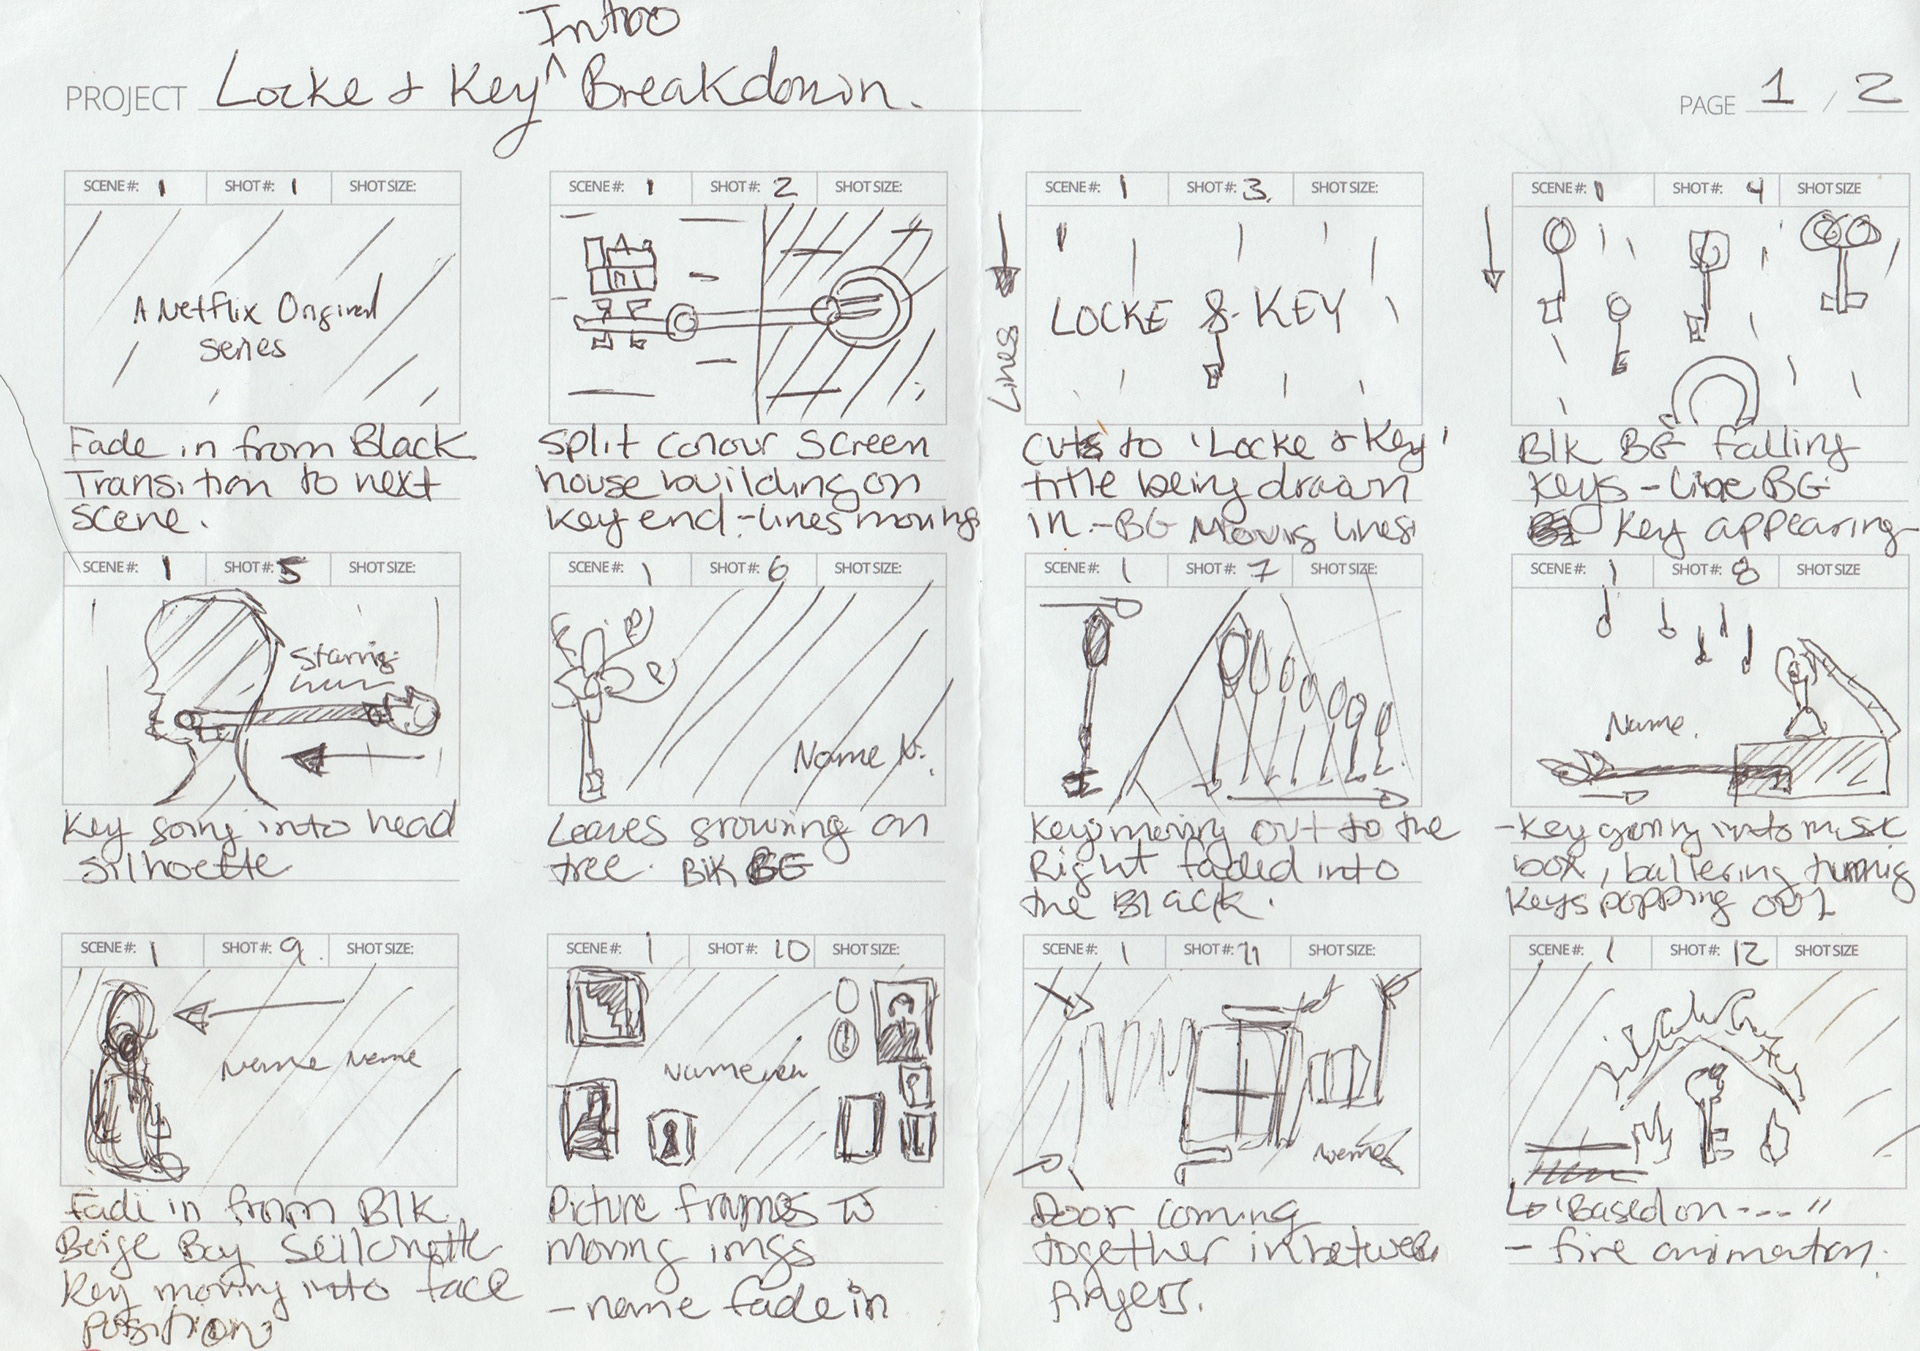 Intro
PROJECT Locke & Key ^ Breakdown.
PAGE 1 / 2
SCENE #: 1 SHOT #: 1 SHOT SIZE:
A Netflix Original
series
Fade in from Black
Transition to next
scene.
SCENE #: 1 SHOT #: 2 SHOT SIZE:
Split Colour Screen
house building on
Key end - lines moving
SCENE #: 1 SHOT #: 3. SHOT SIZE:
Lines
LOCKE & KEY
Cuts to 'Locke & Key'
title being drawn
in. - BG Moving lines
SCENE #: 1 SHOT #: 4 SHOT SIZE
Blk BG falling
Keys - line BG
Key appearing
SCENE #: 1 SHOT #: 5 SHOT SIZE:
Starring
Key going into head
silhoette
SCENE #: 1 SHOT #: 6 SHOT SIZE:
Name N.
Leaves growing on
tree. Blk BG
SCENE #: 1 SHOT #: 7 SHOT SIZE:
Keys moving out to the
Right faded into
the Black.
SCENE #: 1 SHOT #: 8 SHOT SIZE
Name.
- Key going into music
box, ballering turning
Keys popping out
SCENE #: 1 SHOT #: 9. SHOT SIZE:
Name Name
Fade in from Blk.
Beige Boy
Key moving into face
position
SCENE #: 1 SHOT #: 10 SHOT SIZE:
Name
Picture frames w
moving imgs
- name fade in
SCENE #: 1 SHOT #: 11 SHOT SIZE:
Name
Door coming
together inbetween
fingers.
SCENE #: 1 SHOT #: 12 SHOT SIZE
'Based on --- "
- fire animation.